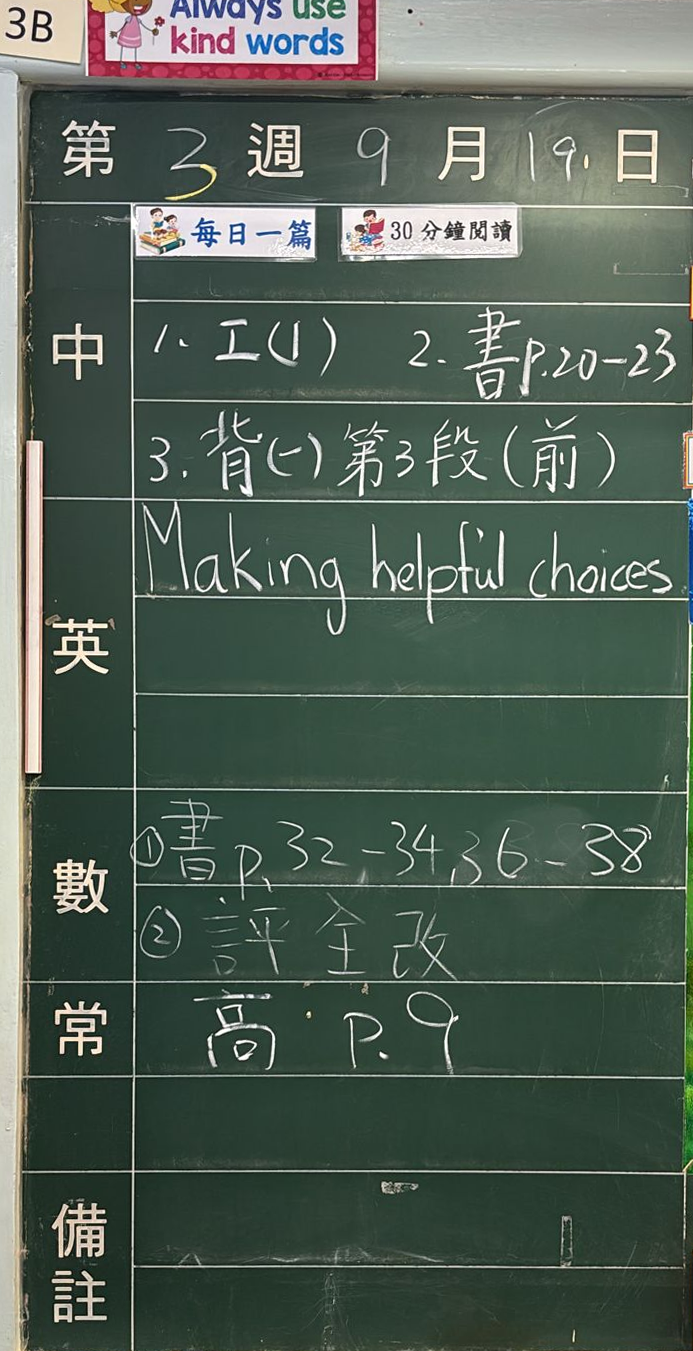 3B
Always use
kind words
第 3 週 9 月 19 日
每日一篇 30分鐘閱讀
中
1. 工(1) 2. 書p.20-23
3. 背(一)第3段(前)
英
Making helpful choices
數
①書p.32-34,36-38
② 評全改
常
高 P.9
備註